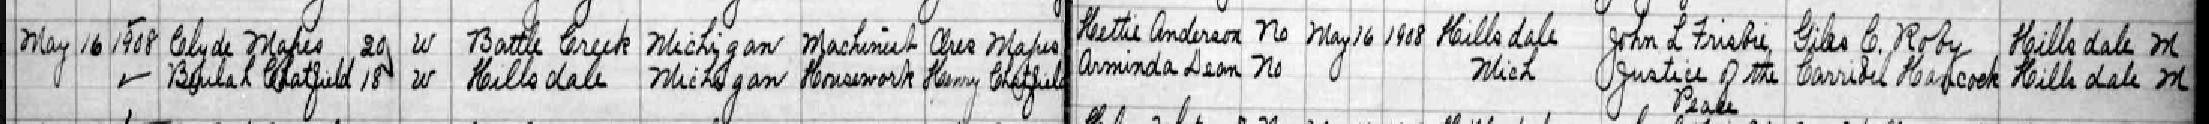 May 16 1908 Clyde Mapes 20 W Battle Creek Michigan Machinist Ores Mapes Hettie Anderson No May 16 1908 Hillsdale John L Frisbie, Giles C. Roby Hillsdale M
✓ Beulah Chatfield 18 W Hillsdale Michigan Housework Henry Chatfield Arminda Dean No Mich Justice of the Carrie Hancock Hillsdale M
Peace